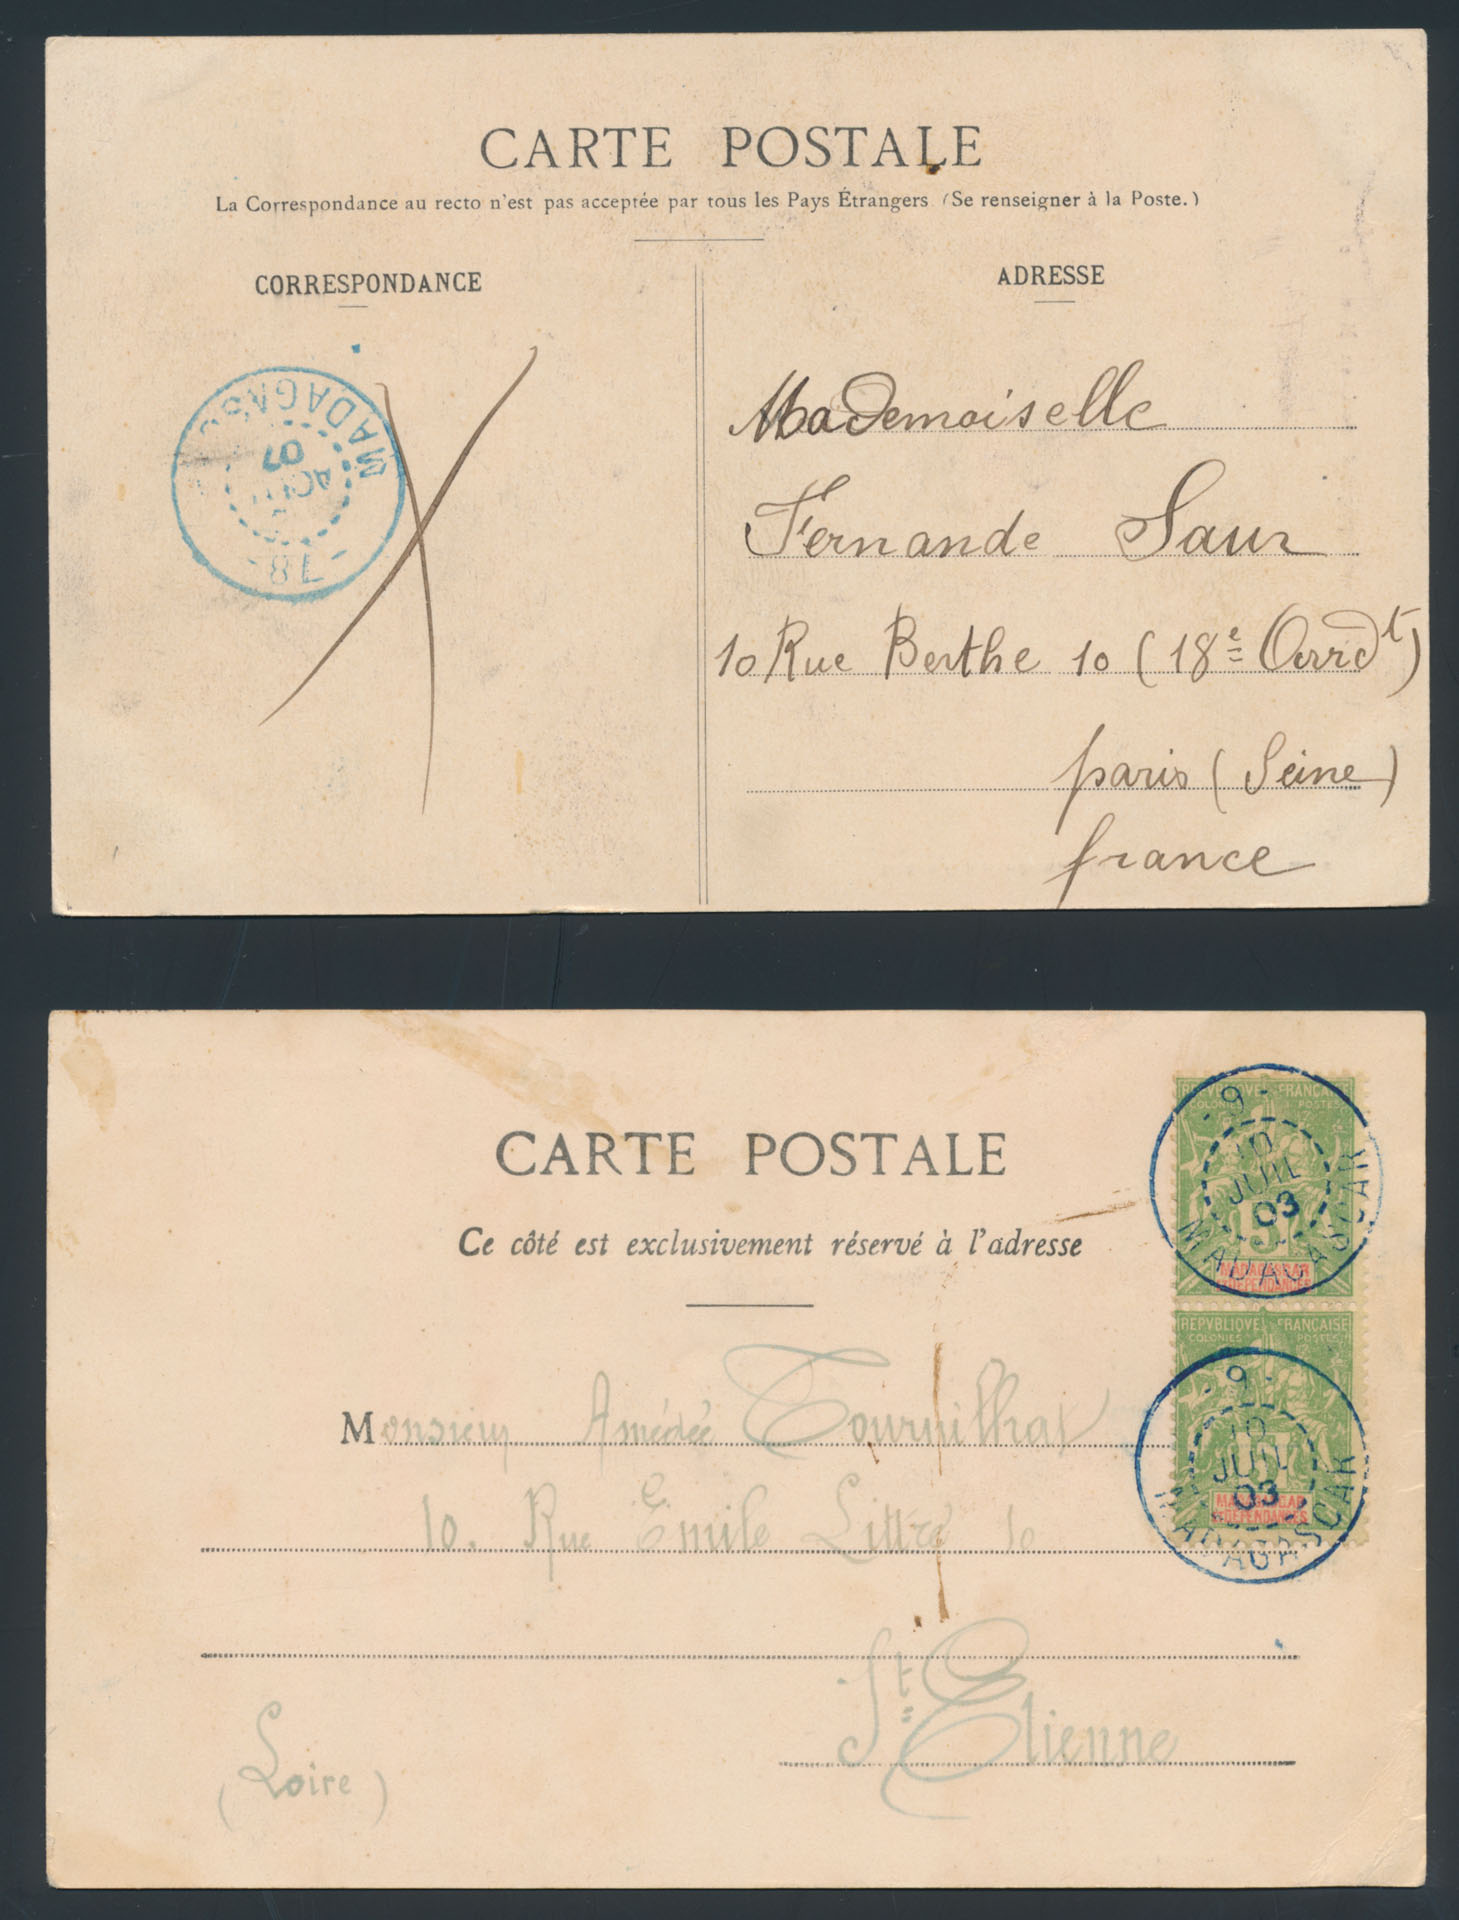 CARTE POSTALE
La Correspondance au recto n'est pas acceptée par tous les Pays Étrangers (Se renseigner à la Poste.)
CORRESPONDANCE
ADRESSE
MADAGAS
07
-78-
Mademoiselle
Fernande Saur
10 Rue Berthe 10 (18e Arrdt)
paris (Seine)
france
CARTE POSTALE
Ce côté est exclusivement réservé à l'adresse
REPVBLIQVE FRANÇAISE
COLONIES POSTES
5
MADAGASCAR
ET DÉPENDANCES
- 9 -
10
JUIL
03
MADAGASCAR
REPVBLIQVE FRANÇAISE
COLONIES POSTES
5
MADAGASCAR
ET DÉPENDANCES
- 9 -
10
JUIL
03
MADAGASCAR
Monsieur Amédée
10. Rue Emile Littré 10
St Etienne
(Loire)